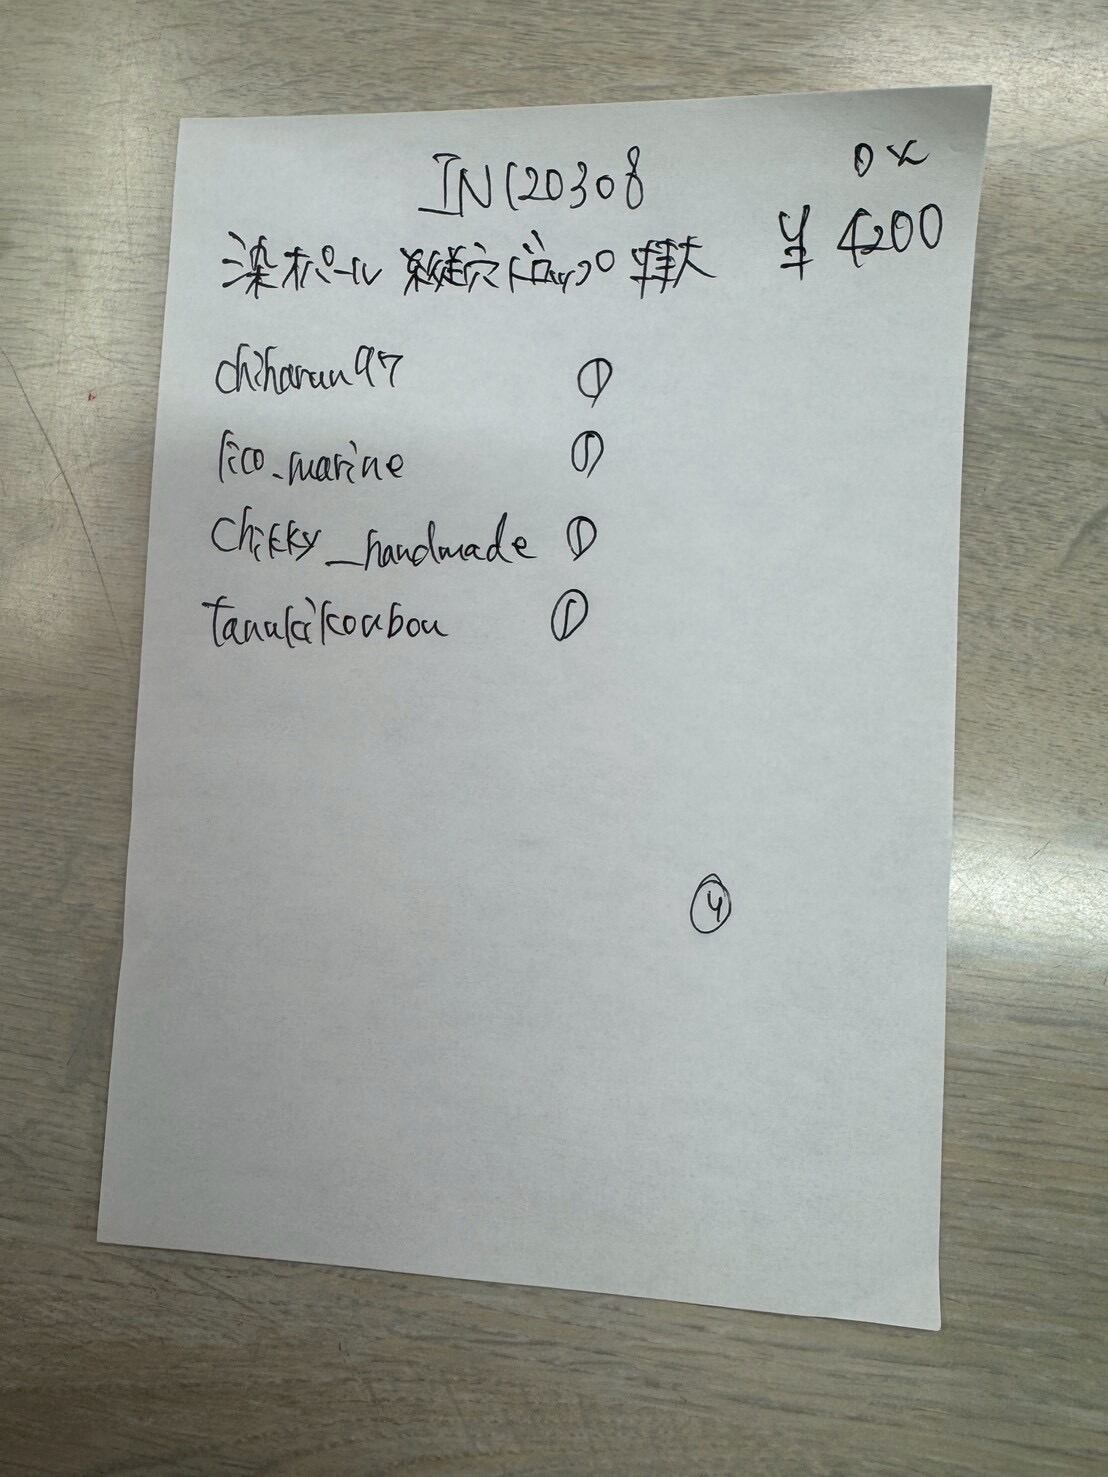 IN120308
0x
染パール 縦穴ドロップ 特大 ¥4200
chiharun97 ①
rico_marine ①
chikky_handmade ①
tanukikoubou ①
④